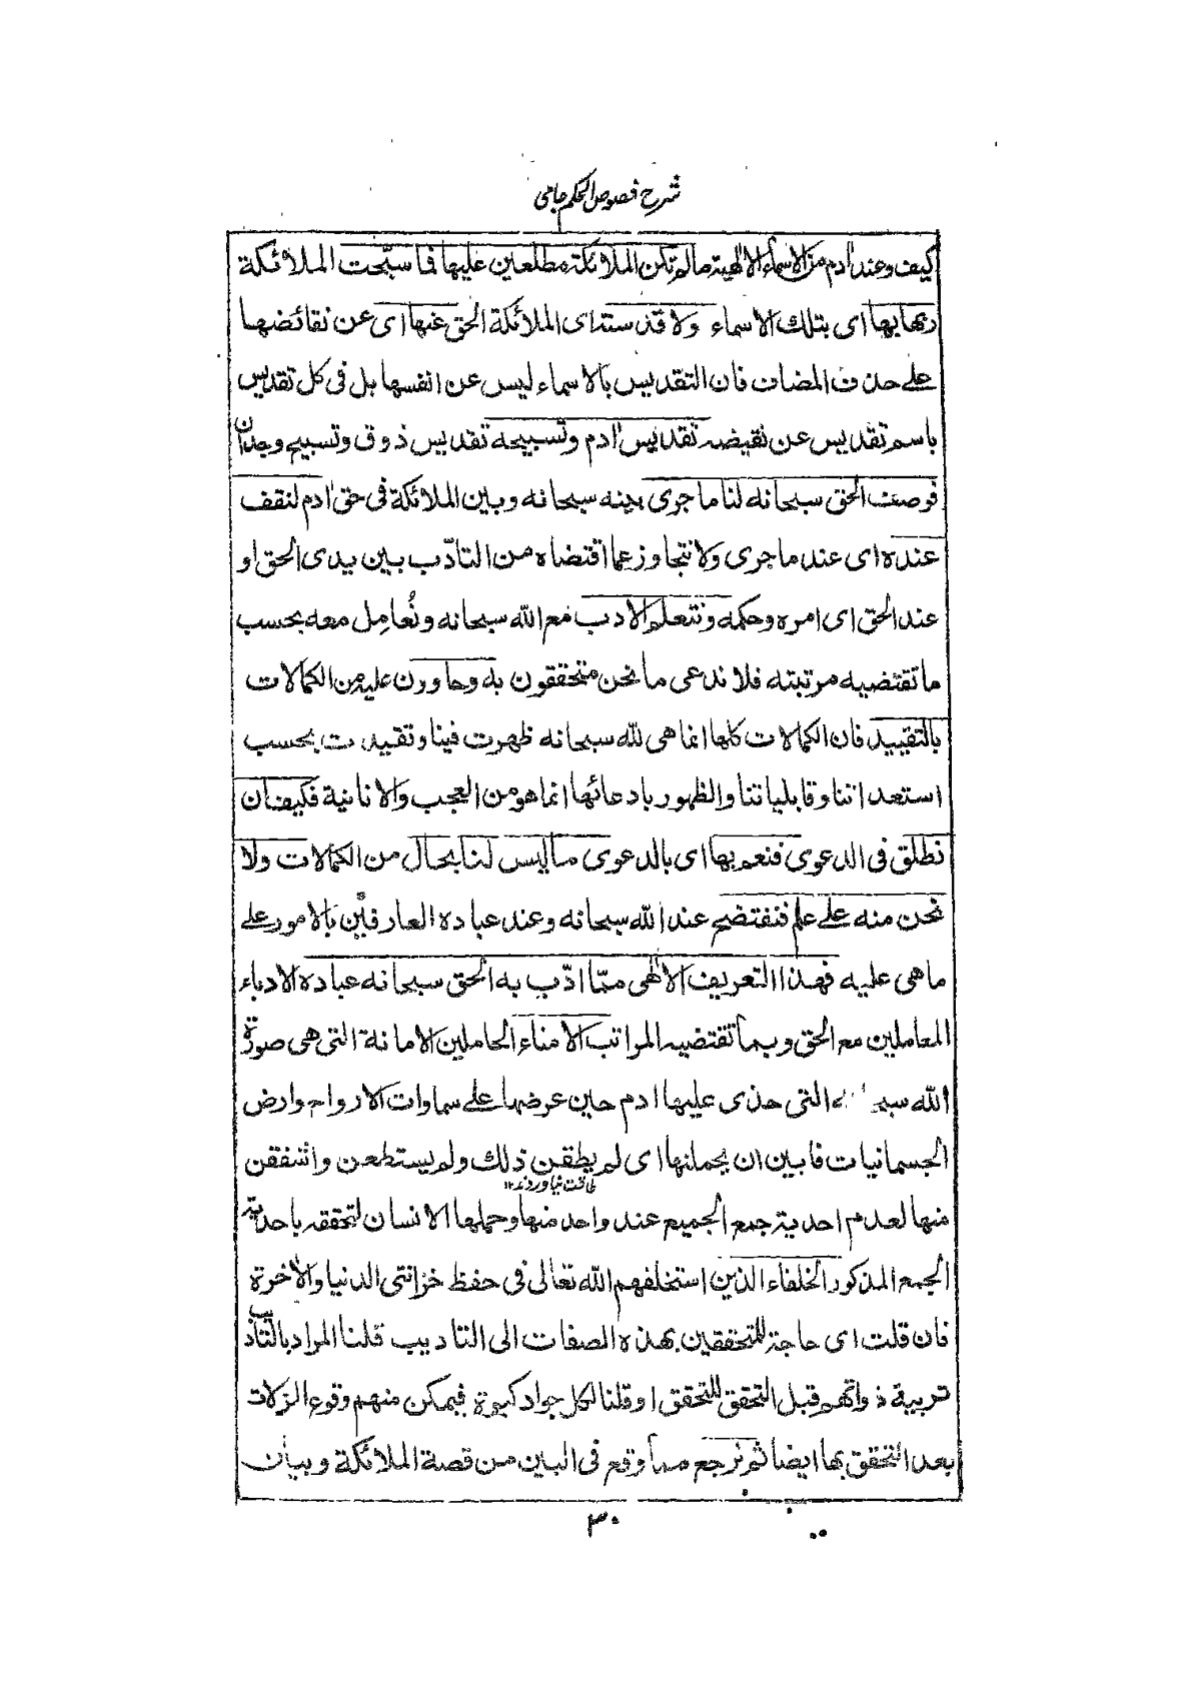 شرح فصوص الحكم جامی
كيف وعند آدم من الاسماء الالهية مالم تكن الملائكة مطلعين عليها فما سبّحت الملائكة
ربها بها اى بتلك الاسماء ولا قدسته اى الملائكة الحق عنها اى عن نقائضها
على حذف المضاف فان التقديس بالاسماء ليس عن انفسها بل فى كل تقديس
باسم تقديس عن نقيضه تقديس آدم وتسبيحه تقديس ذوق وتسبيح وجدان
فوصف الحق سبحانه لنا ما جرى بينه سبحانه وبين الملائكة فى حق آدم لنقف
عنده اى عند ما جرى ولا نتجاوز عما اقتضاه من التادّب بين يدى الحق او
عند الحق اى امره وحكمه ونتعلم الادب مع الله سبحانه ونُعامِل معه بحسب
ما تقتضيه مرتبته فلا ندعى ما نحن متحققون به وحاوون عليه من الكمالات
بالتقييد فان الكمالات كلها انما هى لله سبحانه ظهرت فينا وتقيدت بحسب
استعداتنا وقابلياتنا والظهور بادعائها انما هو من العجب والانانية فكيف ان
نطلق فى الدعوى فنعم بها اى بالدعوى ما ليس لنا بحال من الكمالات ولا
نحن منه على علم فنفتضح عند الله سبحانه وعند عباده العارفين بالامور على
ما هى عليه فهذا التعريف الالٰهى ممّا ادّب به الحق سبحانه عباده الادباء
المعاملين مع الحق وبما تقتضيه المراتب الامناء الحاملين الامانة التى هى صورة
الله التى حذى عليها ادم حين عرضها على سماوات الارواح وارض
الجسمانيات فابين ان يحملنها اى لم يطقن ذلك ولم يستطعن واشفقن
طاقت نیاوردند ۱۲
منها لعدم احدية جمع الجميع عند واحد منها وحملها الانسان لتحققه باحدية
الجمع المذكور الخلفاء الذين استخلفهم الله تعالى فى حفظ خزانتى الدنيا والآخرة
فان قلت اى حاجة للمتحققين بهذه الصفات الى التاديب قلنا المراد بالتاديب
تربية ذواتهم قبل التحقق للتحقق او قلنا لكل جواد كبوة فيمكن منهم وقوع الزلات
بعد التحقق بها ايضا ثم نرجع مما وقع فى البين من قصة الملائكة وبيان
۳۰